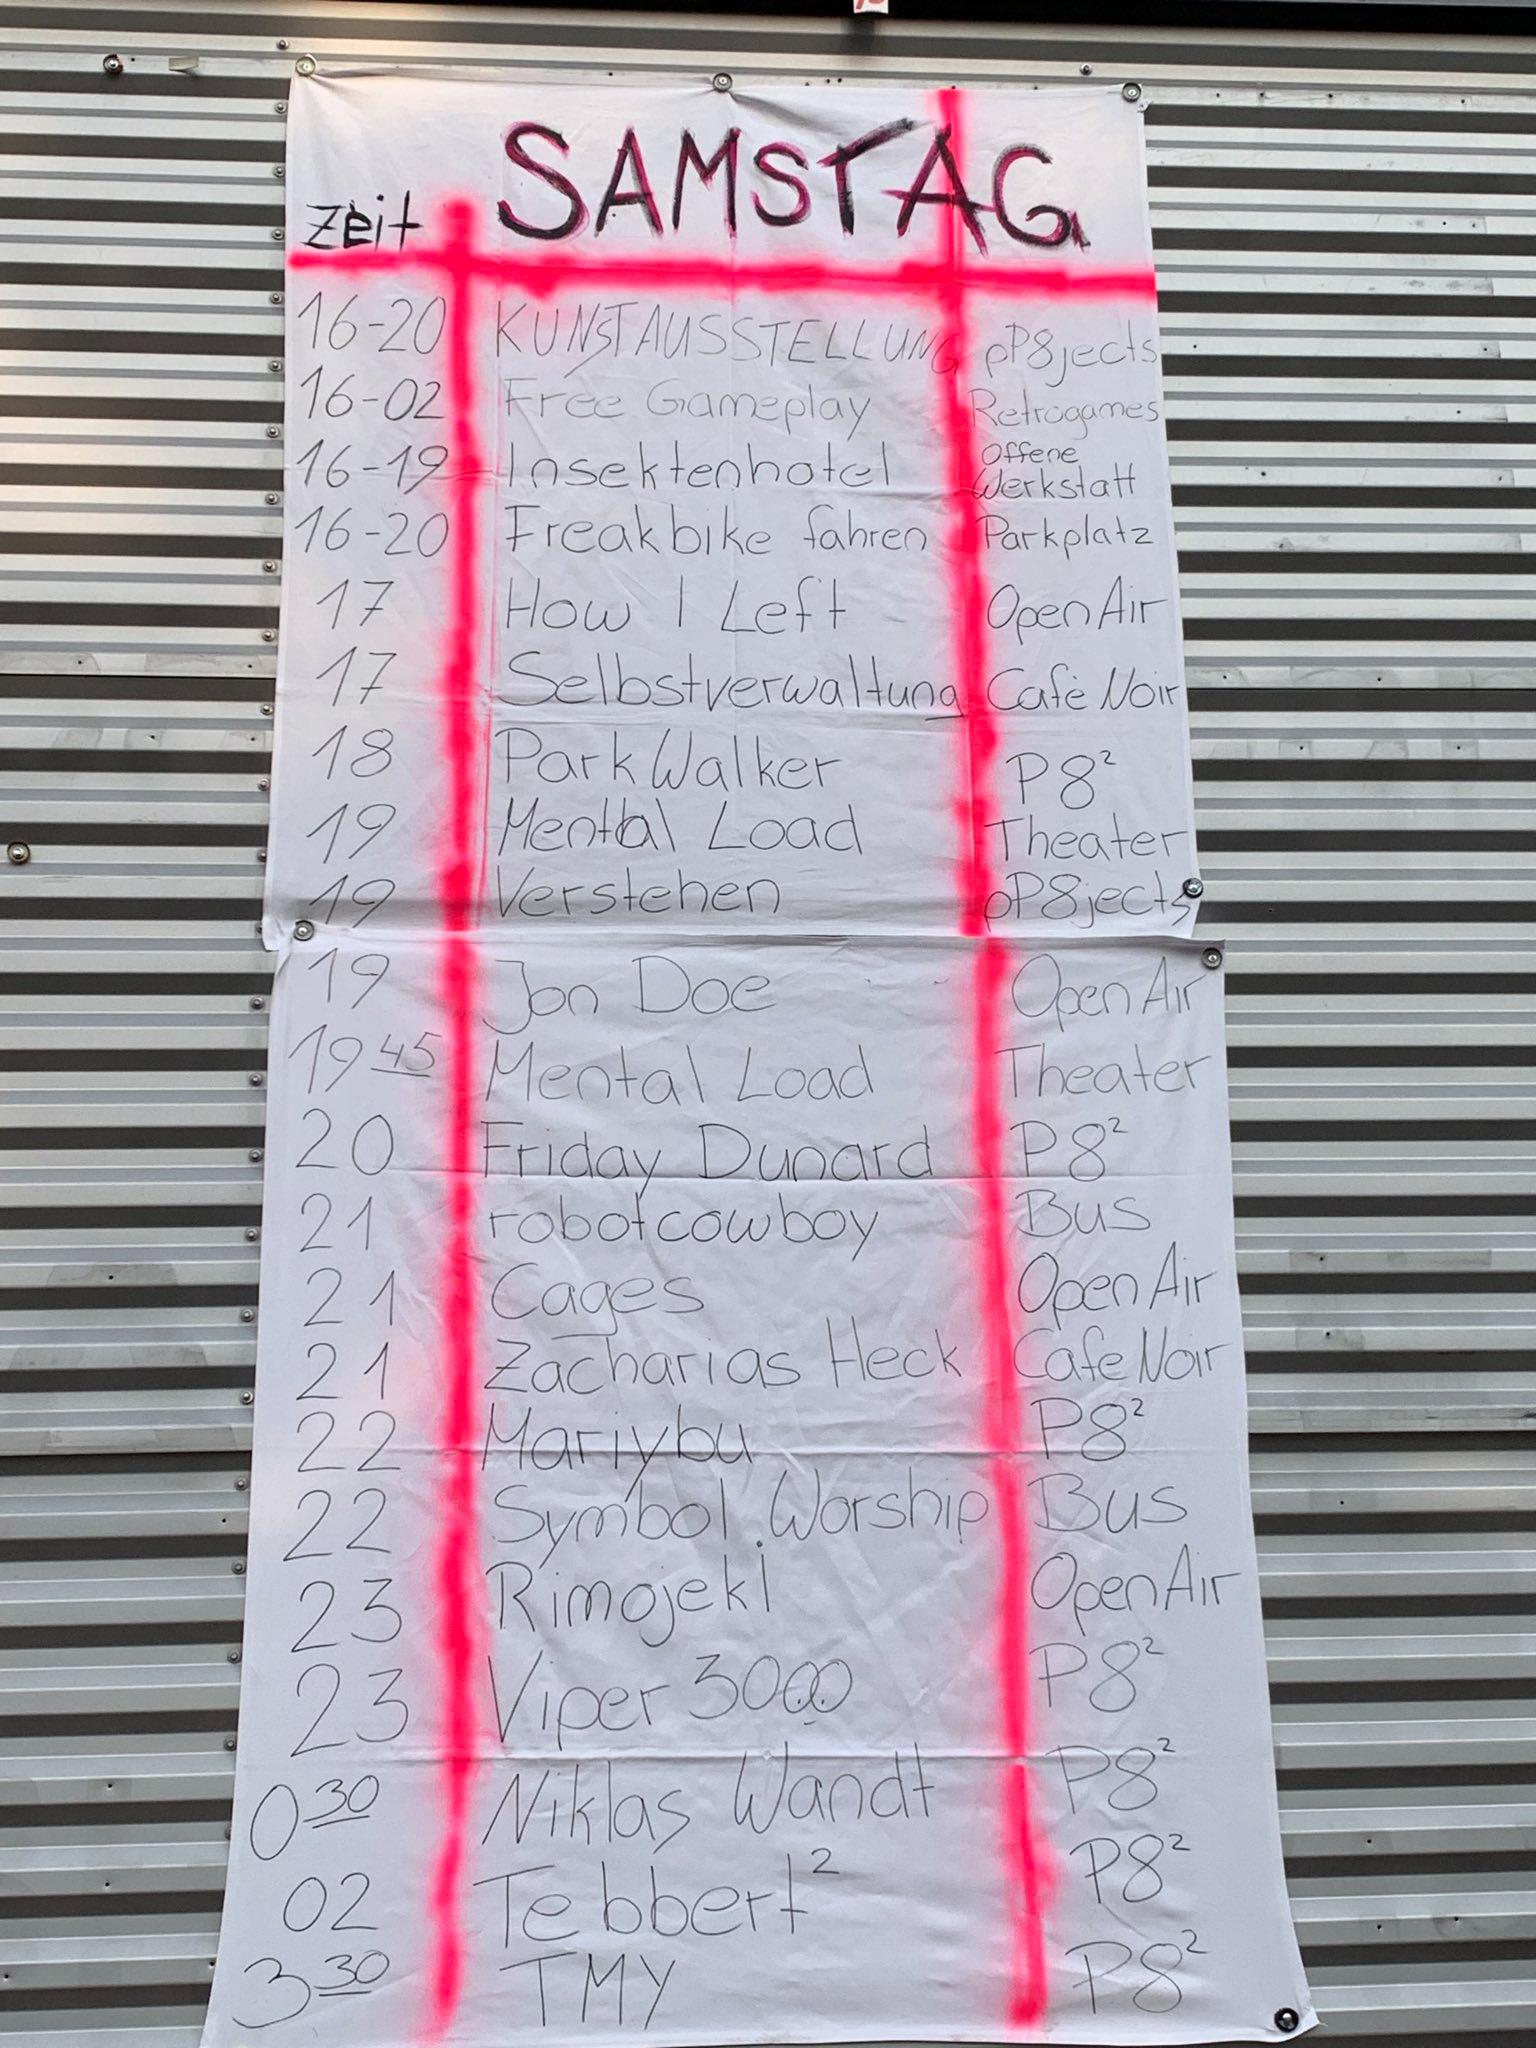 SAMSTAG
Zeit
16-20 KUNSTAUSSTELLUNG pP8jects
16-02 Free Gameplay Retrogames
16-19 Insektenhotel Offene Werkstatt
16-20 Freakbike fahren Parkplatz
17 How I Left Open Air
17 Selbstverwaltung Cafè Noir
18 Park Walker P8²
19 Mental Load Theater
19 Verstehen pP8jects
19 Jon Doe Open Air
19 45 Mental Load Theater
20 Friday Dunard P8²
21 robotcowboy Bus
21 Cages Open Air
21 Zacharias Heck Cafe Noir
22 Mariybu P8²
22 Symbol Worship Bus
23 Rimojeki Open Air
23 Viper 3000 P8²
0 30 Niklas Wandt P8²
02 Tebbert² P8²
3 30 TMY P8²